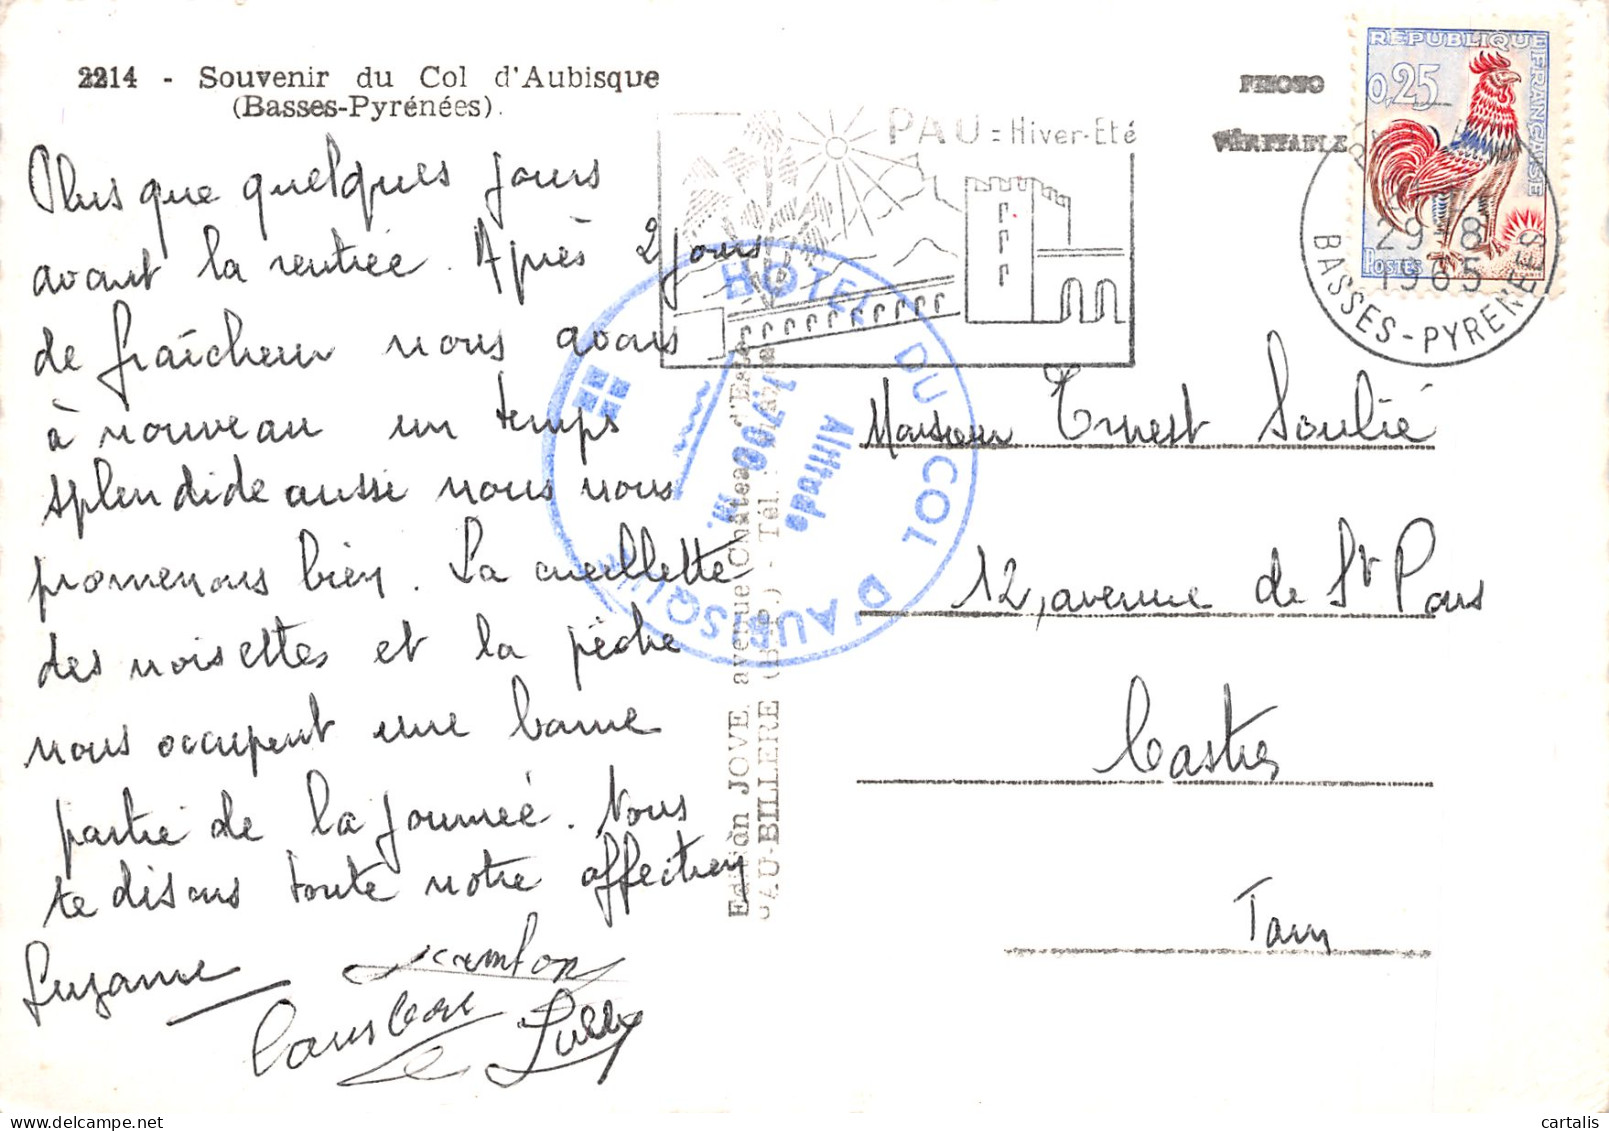 2214 - Souvenir du Col d'Aubisque
(Basses-Pyrénées).
PHOTO
VÉRITABLE
Plus que quelques jours
avant la rentrée. Après 2 jours
de fraîcheur nous avons
à nouveau un temps
splendide aussi nous nous
promenons bien. La cueillette
des noisettes et la pêche
nous occupent une bonne
partie de la journée. Nous
te disons toute notre affection
Suzanne
Lully
PAU = Hiver-Eté
RÉPUBLIQUE FRANÇAISE
0,25
POSTES
29-8
1965
BASSES-PYRENEES
HOTEL DU COL D'AUBISQUE
Altitude
1.700 m.
Edition JOVE, avenue Château d'Este
PAU-BILLERE (B.-P.) - Tél.
Monsieur Ernest Soulié
12, avenue de St Pons
Castres
Tarn
cartalis